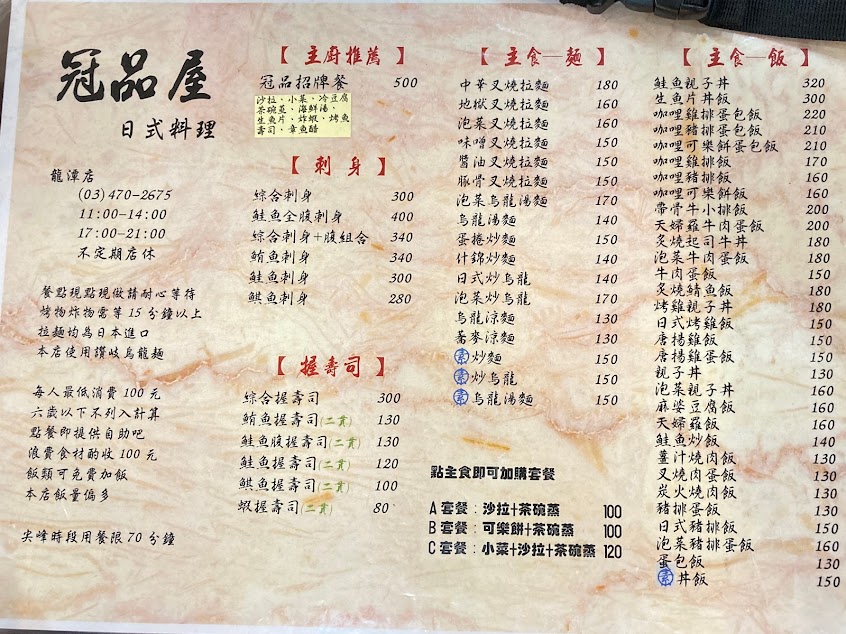 冠品屋
日式料理
龍潭店
(03)470-2675
11:00-14:00
17:00-21:00
不定期店休
餐點現點現做請耐心等待
烤物炸物需等15分鐘以上
拉麵均為日本進口
本店使用讚岐烏龍麵
每人最低消費100元
六歲以下不列入計算
點餐即提供自助吧
浪費食材酌收100元
飯類可免費加飯
本店飯量偏多
尖峰時段用餐限70分鐘
【主廚推薦】
冠品招牌餐 500
沙拉、小菜、冷豆腐
茶碗蒸、海鮮湯、
生魚片、炸蝦、烤魚
壽司、章魚醋
【刺身】
綜合刺身 300
鮭魚全腹刺身 400
綜合刺身+腹組合 340
鮪魚刺身 340
鮭魚刺身 300
鯕魚刺身 280
【握壽司】
綜合握壽司 300
鮪魚握壽司(二貫) 130
鮭魚腹握壽司(二貫) 130
鮭魚握壽司(二貫) 120
鯕魚握壽司(二貫) 100
蝦握壽司(二貫) 80
【主食—麵】
中華叉燒拉麵 180
地獄叉燒拉麵 160
泡菜叉燒拉麵 160
味噌叉燒拉麵 160
醬油叉燒拉麵 160
豚骨叉燒拉麵 160
泡菜烏龍湯麵 170
烏龍湯麵 140
蛋捲炒麵 150
什錦炒麵 140
日式炒烏龍 150
泡菜炒烏龍 170
烏龍涼麵 130
蕎麥涼麵 130
素炒麵 150
素炒烏龍 150
素烏龍湯麵 150
點主食即可加購套餐
A套餐:沙拉+茶碗蒸 100
B套餐:可樂餅+茶碗蒸 100
C套餐:小菜+沙拉+茶碗蒸 120
【主食—飯】
鮭魚親子丼 320
生魚片丼飯 300
咖哩雞排蛋包飯 220
咖哩豬排蛋包飯 210
咖哩可樂餅蛋包飯 210
咖哩雞排飯 170
咖哩豬排飯 160
咖哩可樂餅飯 160
帶骨牛小排飯 200
天婦羅牛肉蛋飯 200
炙燒起司牛丼 180
泡菜牛肉蛋飯 180
牛肉蛋飯 150
炙燒鯖魚飯 180
烤雞親子丼 180
日式烤雞飯 150
唐揚雞飯 150
唐揚雞蛋飯 150
親子丼 130
泡菜親子丼 160
麻婆豆腐飯 160
天婦羅飯 160
鮭魚炒飯 140
薑汁燒肉飯 130
叉燒肉蛋飯 130
炭火燒肉飯 130
豬排蛋飯 130
日式豬排飯 150
泡菜豬排蛋飯 160
蛋包飯 130
素丼飯 150